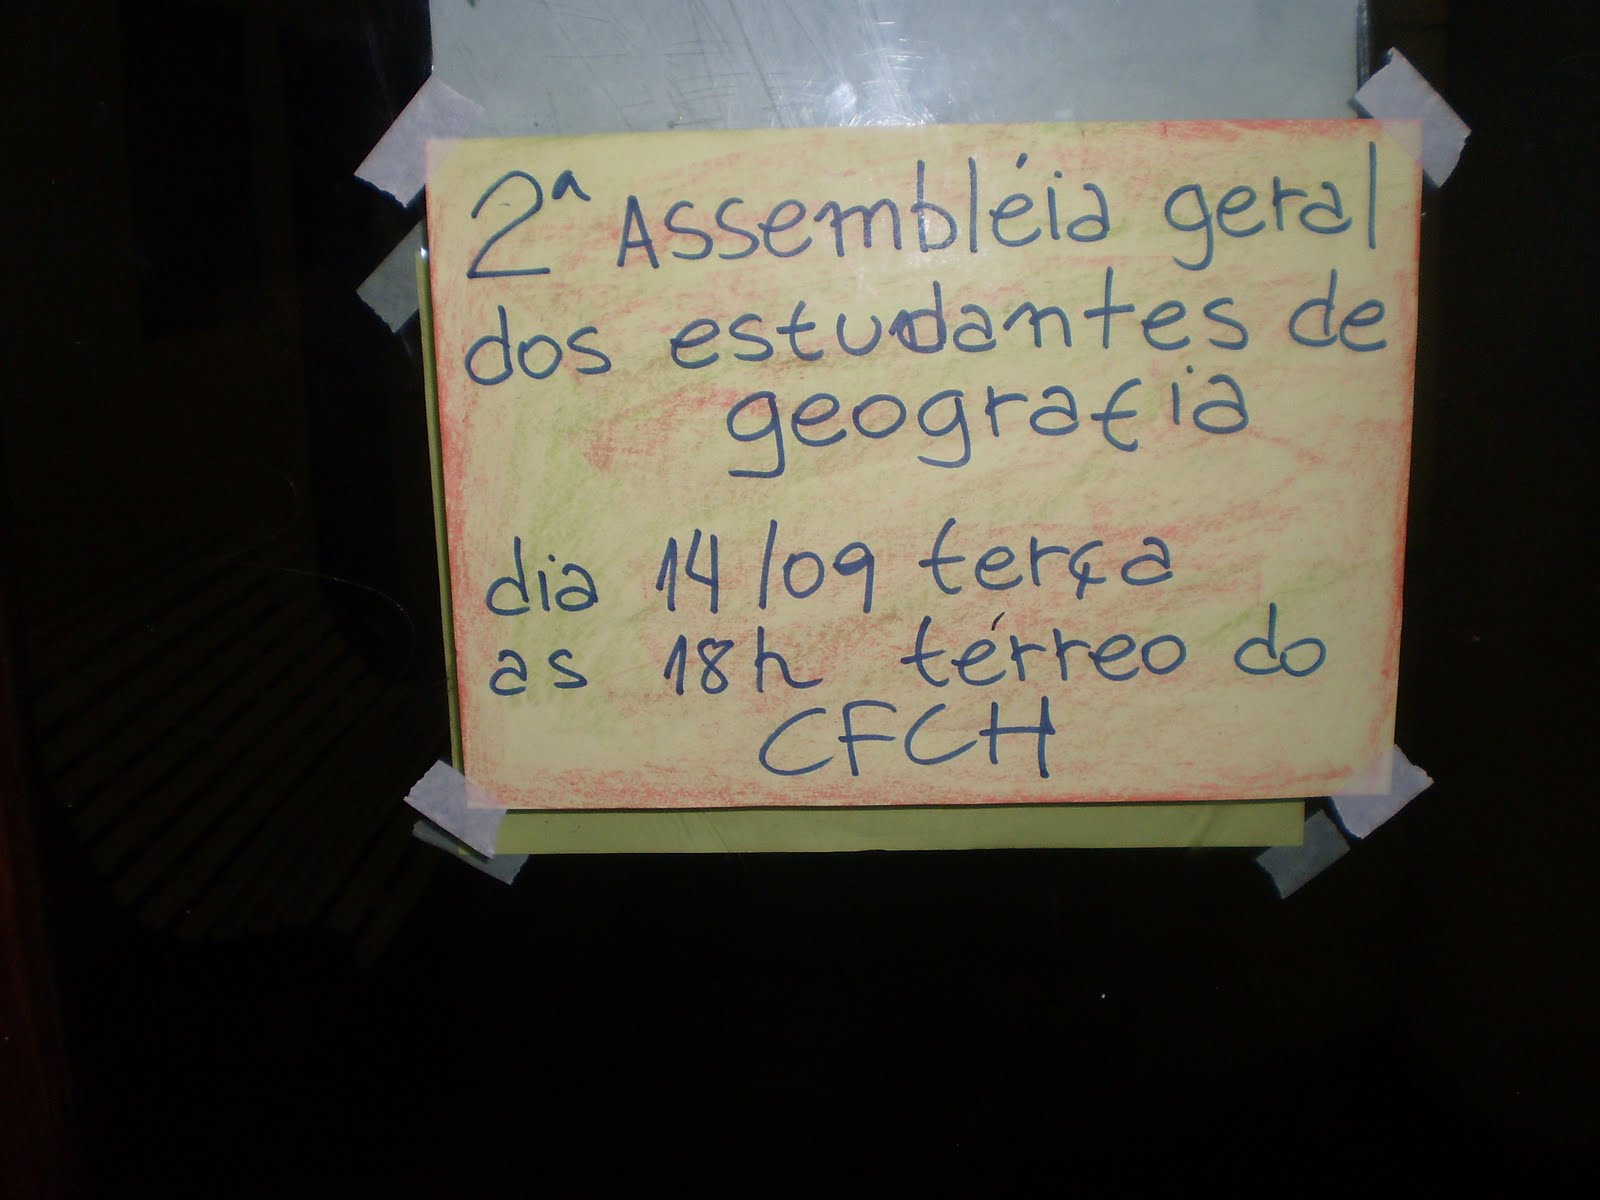 2ª Assembléia geral
dos estudantes de
geografia
dia 14/09 terça
as 18h térreo do
CFCH